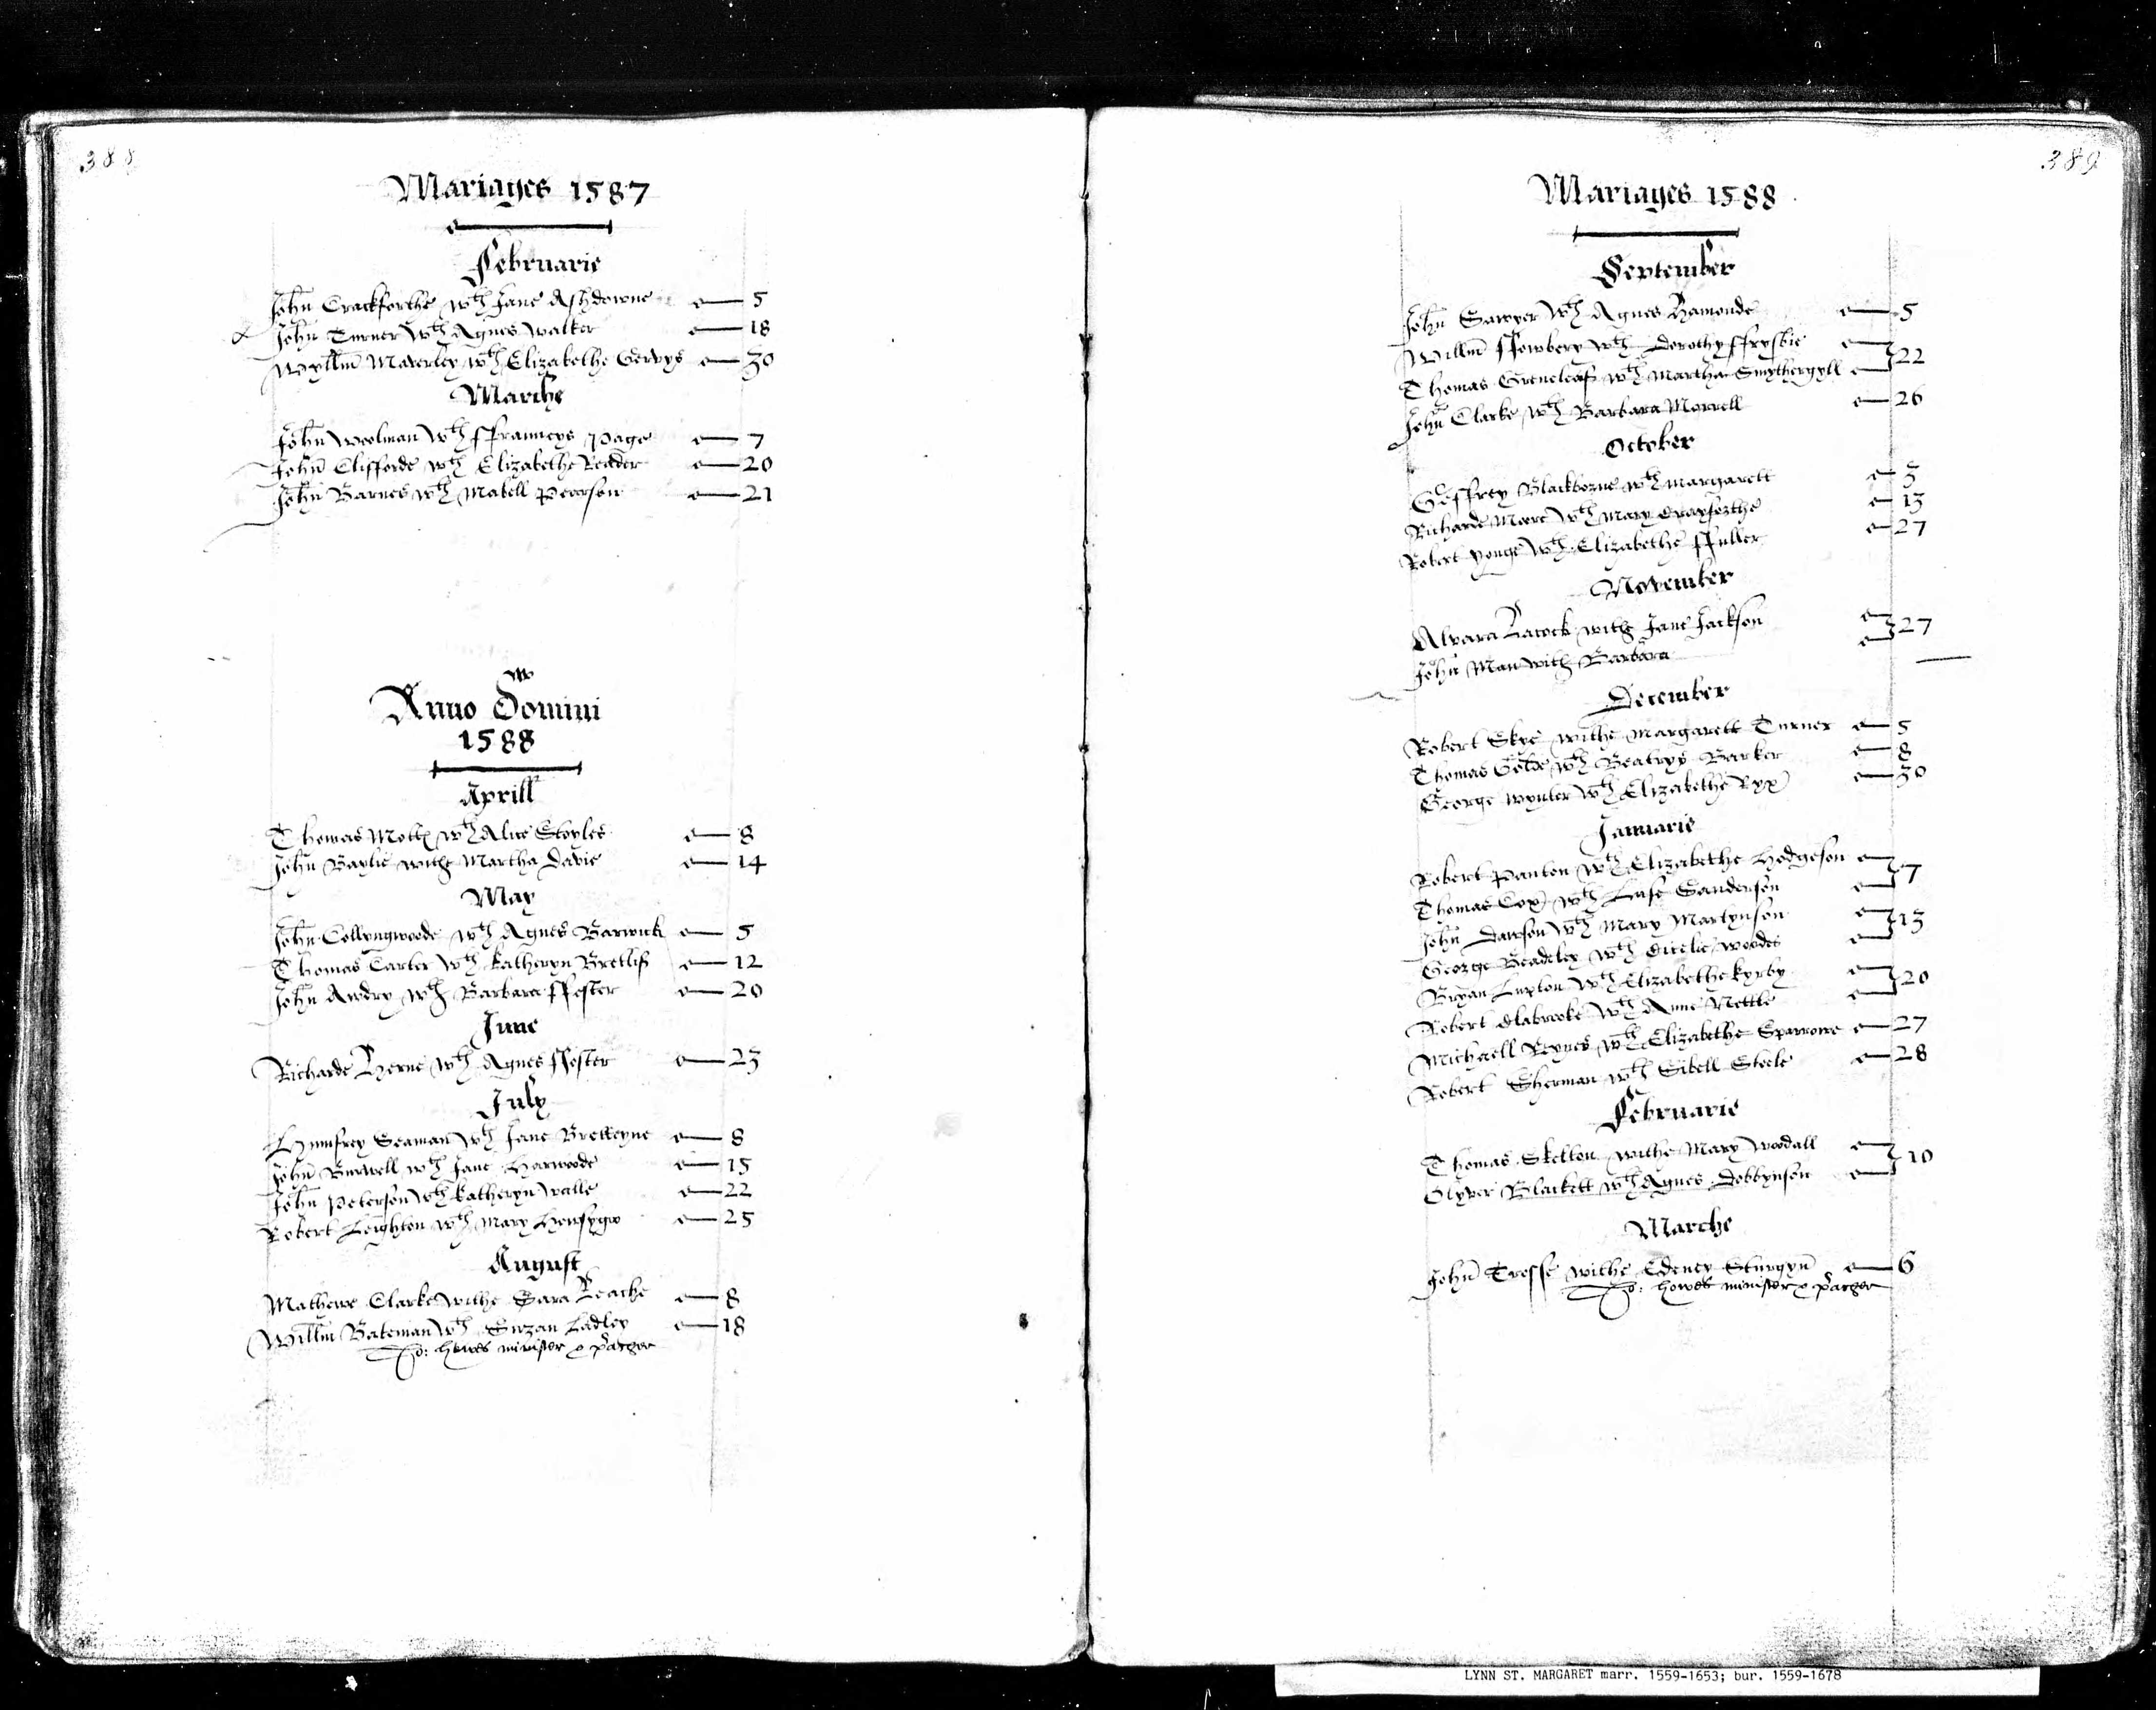 388
Mariages 1587
Februarie
John Crackforthe wth Jane Ashdowne 5
John Turner wth Agnes Walker 18
Wyllm Maverley wth Elizabethe Gervys 30
Marche
John Woolman wth ffranncys Page 7
John Clifforde wth Elizabethe Reader 20
John Barnes wth Mabell Pearson 21
Anno Domini
1588
Aprill
Thomas Mott wth Alice Stoyles 8
John Baylie withe Martha Davie 14
May
John Collyngwoode wth Agnes Barwick 5
Thomas Carter wth Katheryn Bretliff 12
John Awdry wth Barbara ffoster 20
June
Richarde Herne wth Agnes ffoster 23
July
Humfrey Seaman wth Jane Bretteyne 8
John Burwell wth Jane Harwoode 15
John Peterson wth Katheryn Walle 22
Robert Leighton wth Mary Howsygo 25
August
Mathewe Clarke withe Sara Leache 8
Willm Bateman wth Suzan Ladley 18
Jo: howes minister &
389
Mariages 1588
September
John Sawyer wth Agnes Hamonde 5
Willm ffowbery wth Dorothy ffryskie
Thomas Greneleaf wth Martha Smythergyll 22
John Clarke wth Barbara Morrell 26
October
Geffrey Blackborne wth Margarett 3
Richarde Moore wth Mary Crayforthe 13
Robert Yonge wth Elizabethe ffuller 27
November
Alvara Lacock withe Jane Jackson
John Man withe Barbara 27
December
Robert Skye withe Margarett Turner 5
Thomas Golde wth Beatryx Barker 8
George Wynter wth Elizabethe Ryx 30
Januarie
Robert Panton wth Elizabethe Hodgeson
Thomas Cox wth Luse Sanderson 7
John Dawson wth Mary Martynson
George Beadeley wth Cicelie Woodes 13
Bryan Luxton wth Elizabethe Kyrby
Robert Clabrooke wth Anne Nettle 20
Michaell Reynes wth Elizabethe Sparrowe 27
Robert Sherman wth Sibell Steele 28
Februarie
Thomas Skelton withe Mary Woodall
Olyver Blackett wth Agnes Dobbynson 10
Marche
John Crosse withe Edeney Sturgyn 6
Jo: howes minister &
LYNN ST. MARGARET marr. 1559-1653; bur. 1559-1678